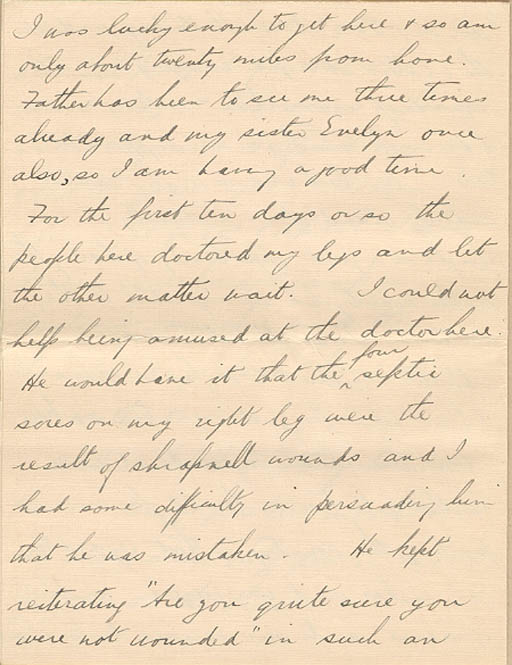 I was lucky enough to get here & so am
only about twenty miles from home.
Father has been to see me three times
already and my sister Evelyn once
also, so I am having a good time.
For the first ten days or so the
people here doctored my legs and let
the other matter wait. I could not
help being amused at the doctor here.
He would have it that the four septic
sores on my right leg were the
result of shrapnell wounds and I
had some difficulty in persuading him
that he was mistaken. He kept
reiterating "Are you quite sure you
were not wounded" in such an